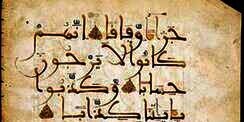 جزا وفاقا انهم
كانوا لا يرجون
حسابا وكذبوا
بايتنا كذابا